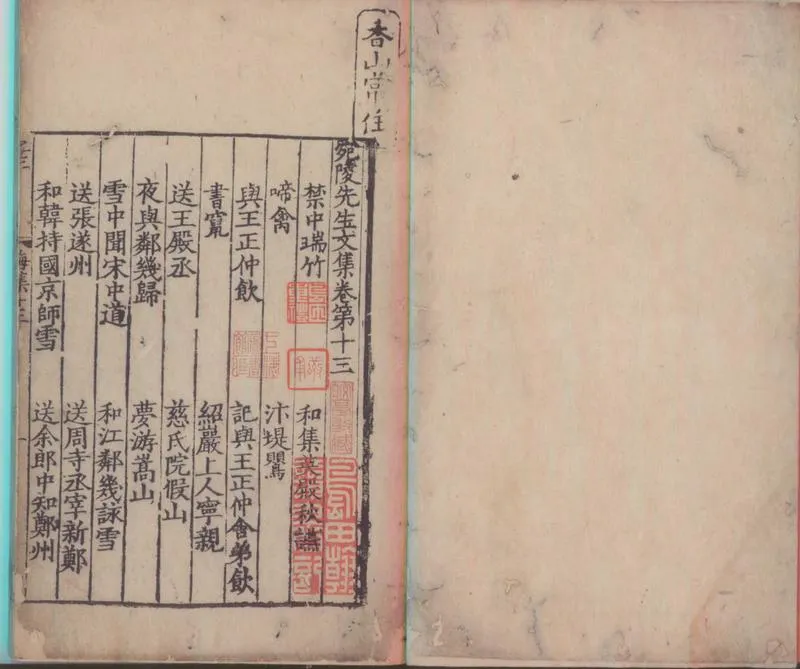 香山常住
宛陵先生文集卷第十三
禁中瑞竹 和集英殿秋讌
啼禽 汴堤鶯
與王正仲飲 記與王正仲會弟飲
書竄 紹嚴上人寧親
送王殿丞 慈氏院假山
夜與鄰幾歸 夢游嵩山
雪中聞宋中道 和江鄰幾詠雪
送張遂州 送周寺丞宰新鄭
和韓持國京師雪 送余郎中知鄭州
梅集十三